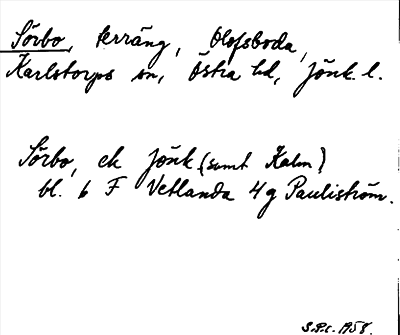 Sörbo, terräng, Olofsboda,
Karlstorps sn, Östra hd, Jönk. l.
Sörbo, ek Jönk (samt Kalm)
bl. 6 F Vetlanda 4g Pauliström.
S.P.C. 1958.